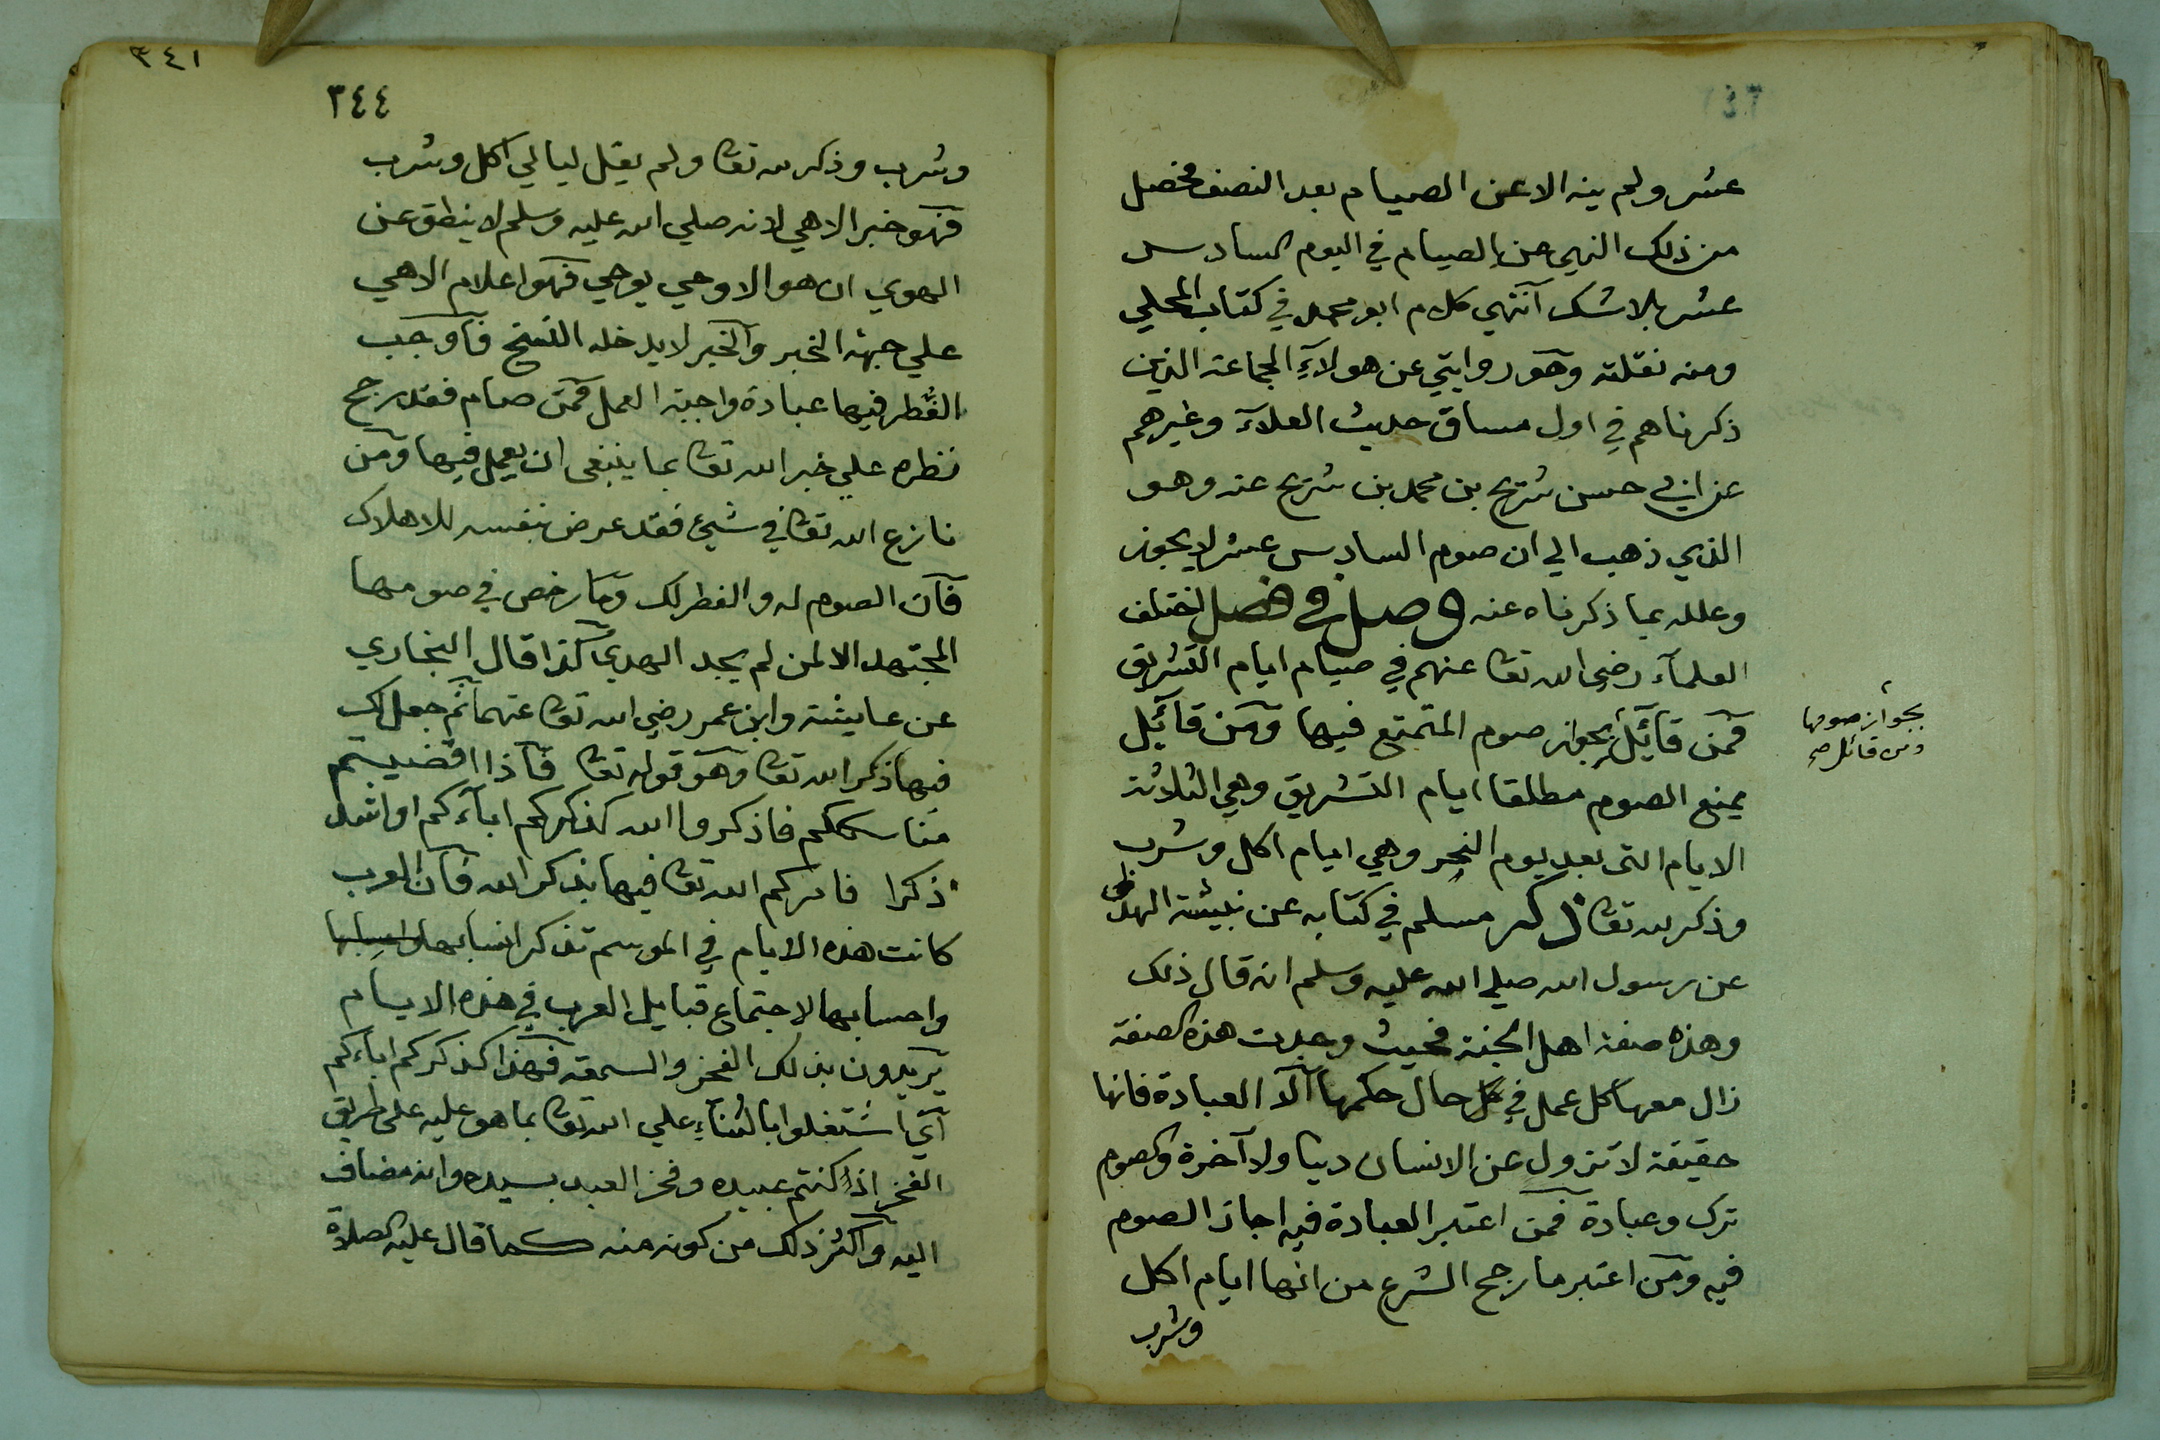 عشر ولم ينه الا عن الصيام بعد النصف فحصل
من ذلك النهي عن الصيام في اليوم السادس
عشر بلا شك انتهي كلام ابو محمد في كتاب المحلي
ومنه نقلته وهو روايتي عن هولآء الجماعة الذين
ذكرناهم في اول مساق حديث العلآء وغيرهم
عن ابي حسن شريح بن محمد بن شريح عنه وهو
الذي ذهب الي ان صوم السادس عشر لا يجوز
وعلله بما ذكرناه عنه وصل في فصل اختلف
العلمآء رضي الله تعا عنهم في صيام ايام التشريق
فمن قآئل بجواز صوم المتمتع فيها ومن قآئل
بجواز صومها
ومن قائل صح
يمنع الصوم مطلقا ايام التشريق وهي الثلاثة
الايام التي بعد يوم النحر وهي ايام اكل وشرب
وذكر لله تعا ذكر مسلم في كتابه عن نبيشة الهذلي
عن رسول الله صلي الله عليه وسلم انه قال ذلك
وهذه صفة اهل الجنة فحيث وجدت هذه الصفة
زال معها كل عمل في كل حال حكمها الا العبادة فانها
حقيقة لا تزول عن الانسان دينا ولا آخرة والصوم
ترك وعبادة فمن اعتبر العبادة فيه اجاز الصوم
فيه ومن اعتبر ما رجح الشرع من انها ايام اكل
وشرب
٣٤١
٣٤٤
وشرب وذكر لله تعا ولم يقل ليالي اكل وشرب
فهو خبر الاهي لانه صلي الله عليه وسلم لا ينطق عن
الهوي ان هو الا وحي يوحي فهو اعلام الاهي
علي جهة الخبر والخبر لا يدخله النسخ فاوجب
الفطر فيها عبادة واجبة العمل فمن صام فقد رجح
نظره علي خبر الله تعا بما ينبغي ان يعمل فيها ومن
نازع الله تعا في شيء فقد عرض بنفسه للاهلاك
فان الصوم له والفطر لك وما رخص في صومها
المجتهد الا لمن لم يجد الهدي كذا قال البخاري
عن عايشة وابن عمر رضي الله تعا عنهما ثم جعل لك
فيها ذكر الله تعا وهو قوله تعا فاذا اقضيتم
مناسككم فاذكروا الله كذكركم ابآءكم او اشد
ذكرا فامركم الله تعا فيها بذكر الله فان العرب
كانت هذه الايام في الموسم تذكر انسابها
واحسابها لاجتماع قبايل العرب في هذه الايام
يريدون بذلك الفخر والسمعة فهذا كذكركم ابآءكم
اي اشتغلوا بالثنآء علي الله تعا بما هو عليه علي طريق
الفخر اذا كنتم عبيده وفخر العبد بسيده وانه مضاف
اليه واكثر ذلك من كونه منه كما قال عليه الصلاة